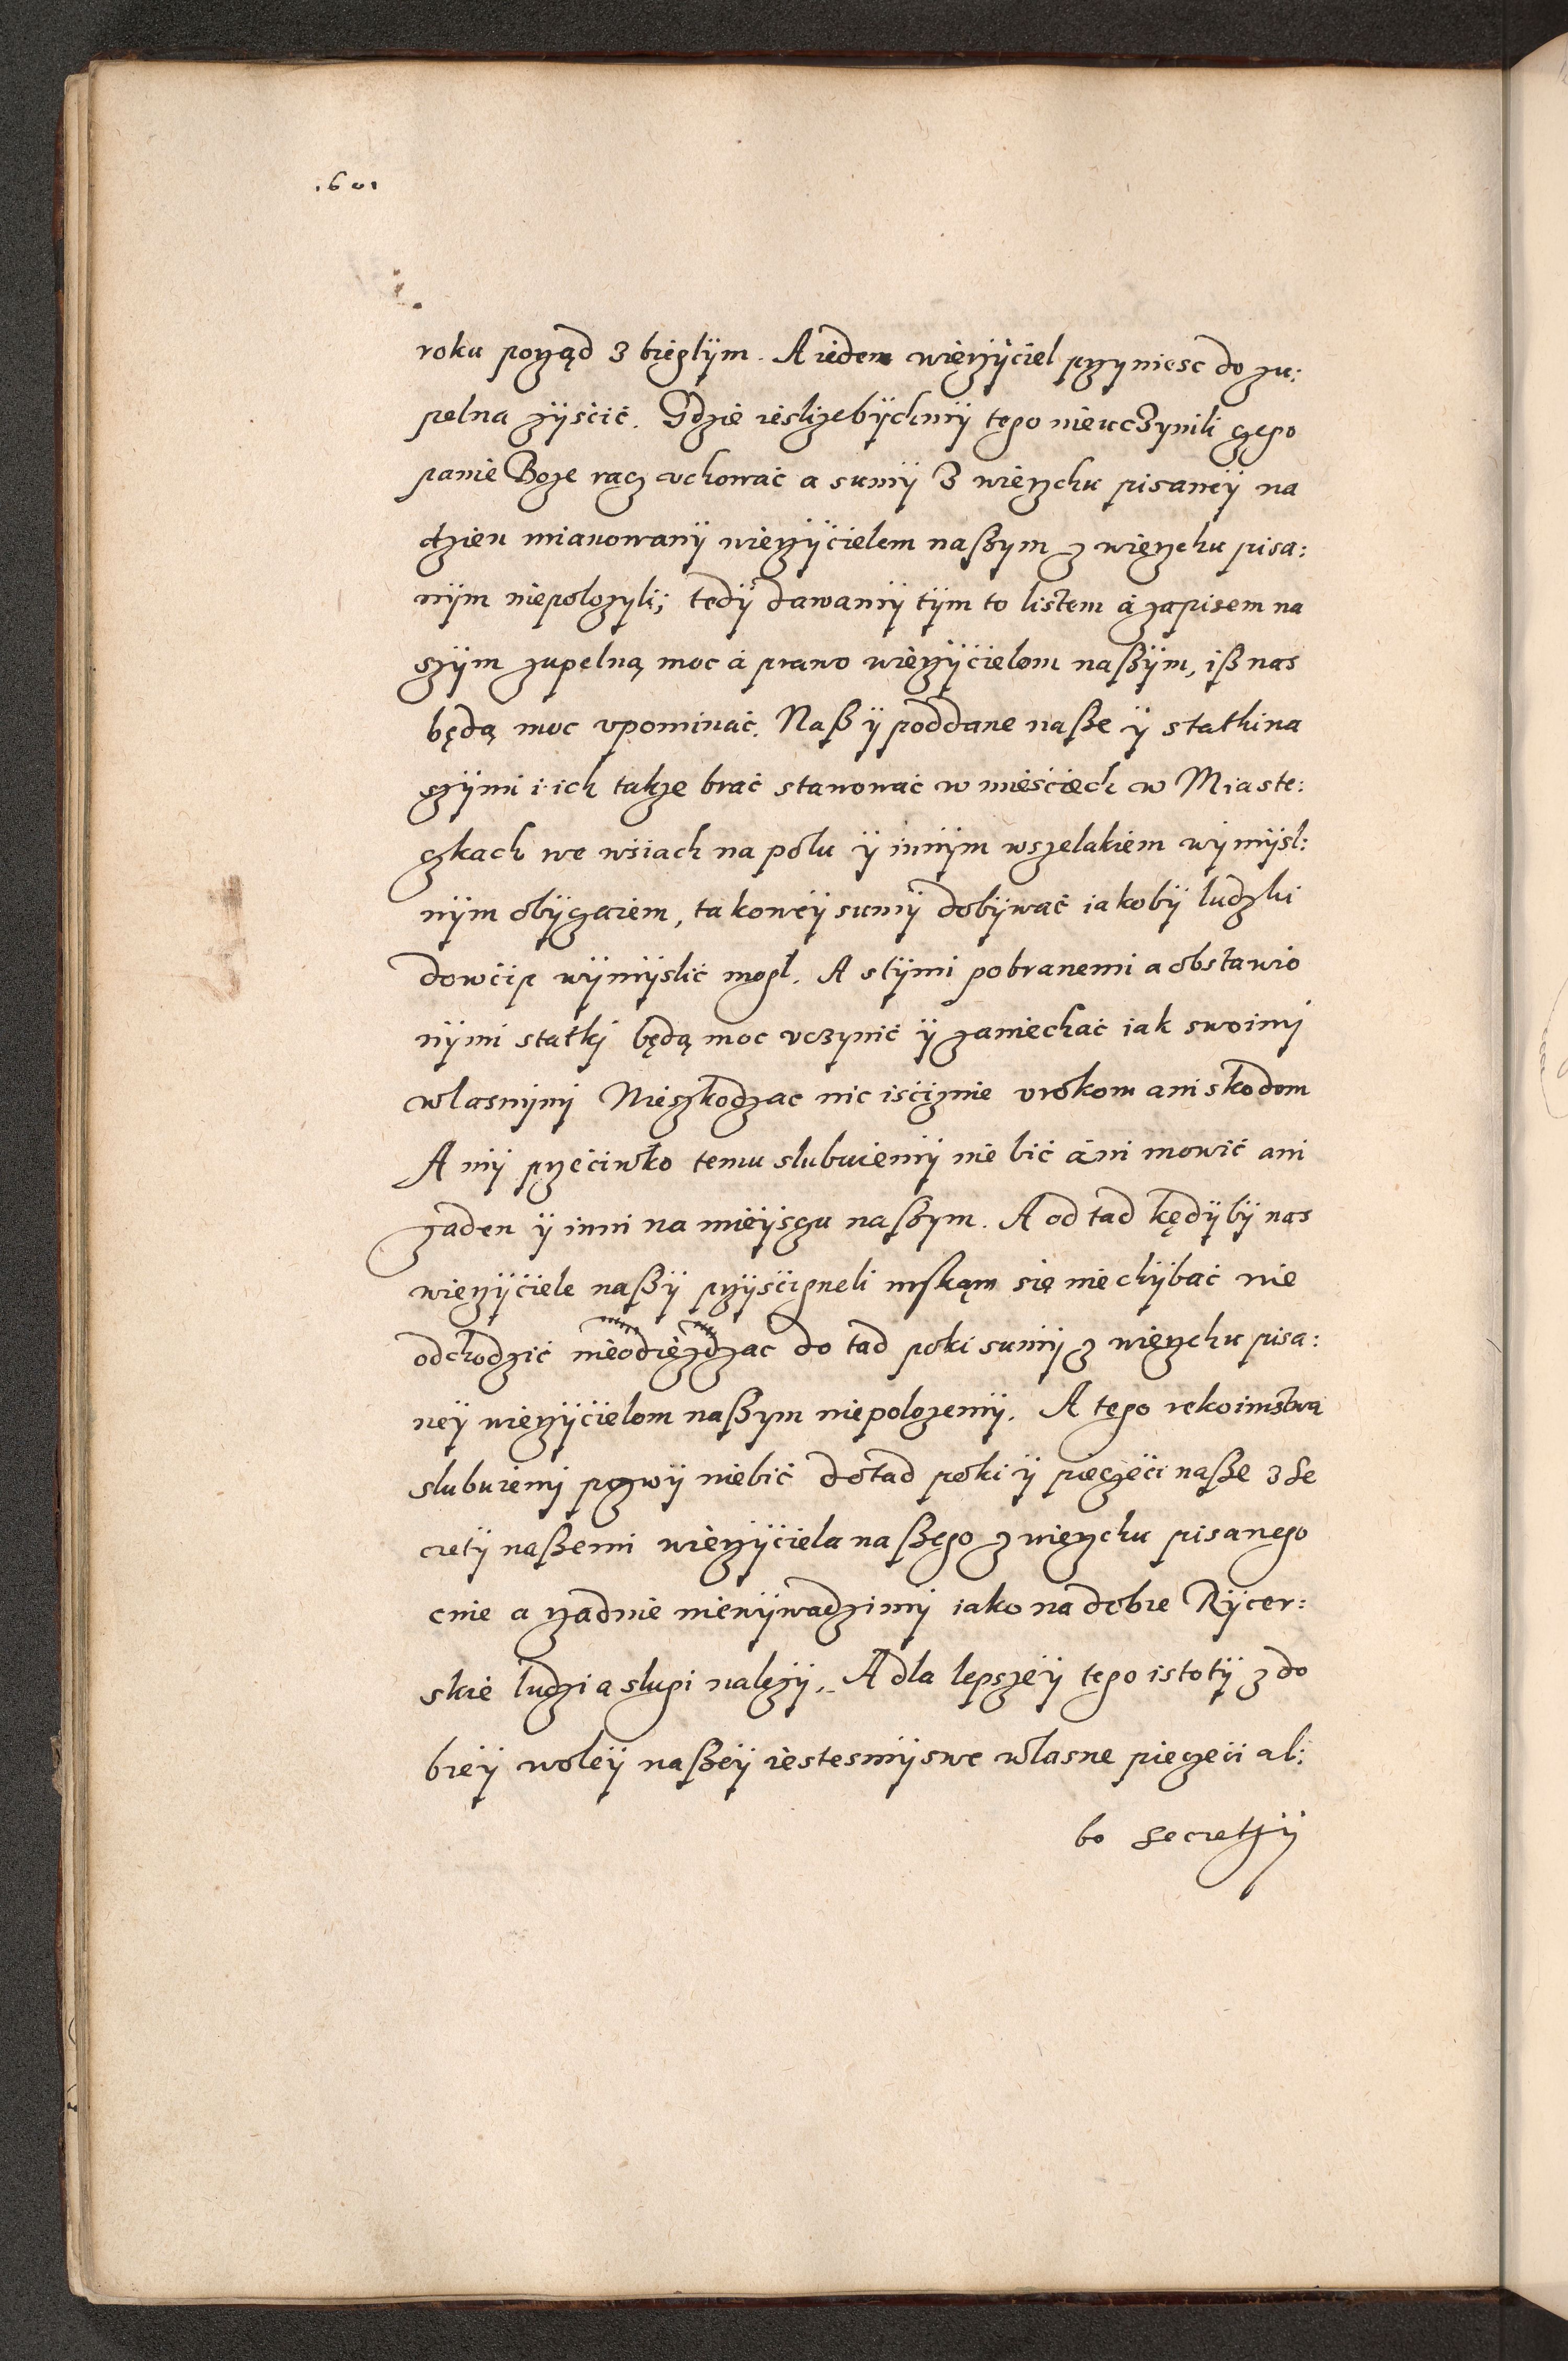 .601
roku porząd z bieglÿm. A ieden wierzÿciel przyniesc do zu:
pelna zÿsćić. Gdzie iesliżebÿchmÿ tego nieuczynili czego
panie Boze racz vchować a sumÿ z wierzchu pisaneÿ na
dzien mianowanÿ wierzÿcielem naßzym z wierzchu pisa:
nÿm niepolozyli; tedÿ dawamÿ tÿm to listem á zapisem na
szÿm zupelną moc á prawo wierzÿcielom naßÿm, iß nas
będą moc vpominać. Naß ÿ poddane naße ÿ statki na
szÿmi i ich takze brać stanować w mieśćiech w Miaste:
czkach we wsiach na polu ÿ innÿm wszelakiem wÿmÿsl:
nÿm obÿczaiem, takoweÿ sumÿ dobÿwać iakobÿ ludzki
dowćip wÿmÿslić mogl. A stÿmi pobranemi a obstawio
nÿmi statkj będą moc vczynić ÿ zaniechać iak swoimj
wlasnÿmj Nieszkodzac nic isćiznie vrokom ani skodom
A mÿ przećiwko temu slubuiemÿ nie bić áni mowić ani
zaden ÿ inni na mieÿsczu naßzym. A od tad kędÿbÿ nas
wierzÿćiele naßÿ przÿsćigneli się nie chÿbać nie
odchodzić nieodieżdzac do tad poki sumÿ z wierzchu pisa:
neÿ wierzÿcielom naßzym niepolozemÿ. A tego rekoimstwa
slubuiemj przwÿ niebić dotad poki ÿ pieczęći naße z Se
cretÿ naßemi wierzÿciela naßego z wierzchu pisanego
cnie a rzadnie niewÿwadzimÿ iako na dobre Rÿcer:
skie ludzi a slugi nalezÿ. A dla lepszeÿ tego istotÿ z do
breÿ woleÿ naßeÿ iestesmÿ swe wlasne pieczęći al:
bo Secretzÿ